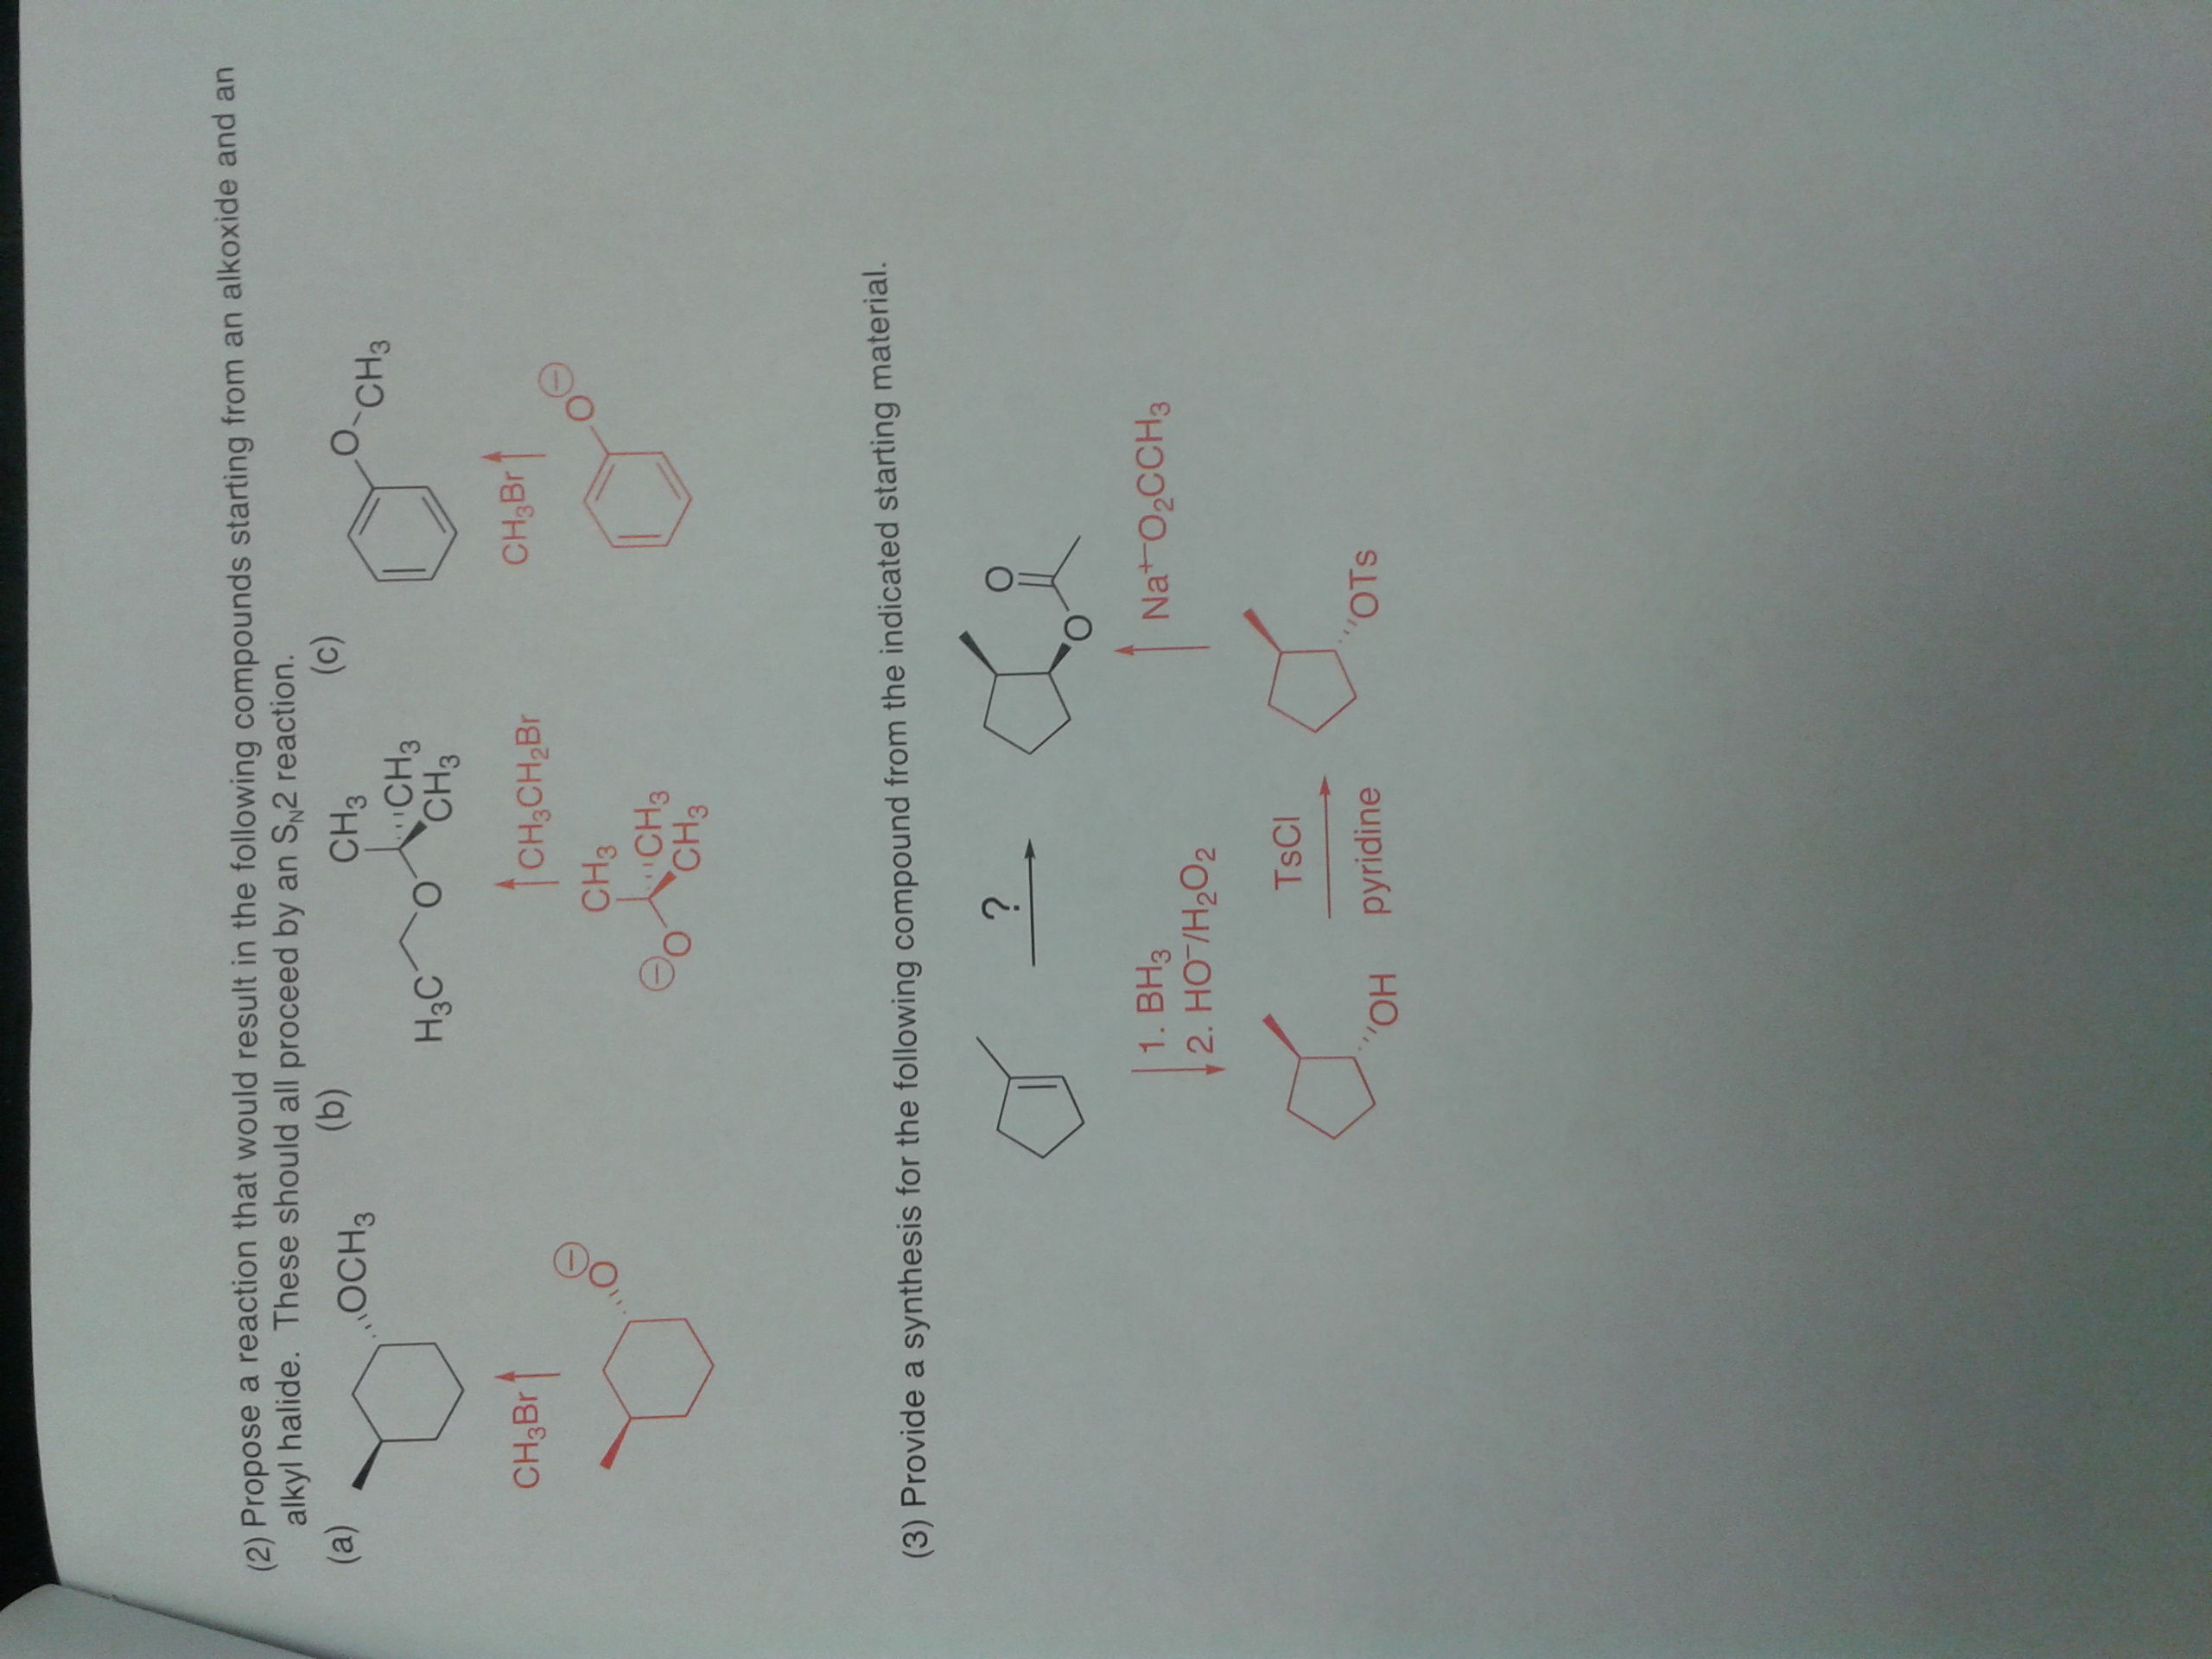 (2) Propose a reaction that would result in the following compounds starting from an alkoxide and an
alkyl halide. These should all proceed by an SN2 reaction.
(a)
OCH3
(b)
H3C
O
CH3
CH3
CH3
(c)
O
CH3
CH3Br
CH3CH2Br
CH3Br
O⊖
⊖O
CH3
CH3
CH3
O⊖
(3) Provide a synthesis for the following compound from the indicated starting material.
?
O
O
1. BH3
2. HO⁻/H2O2
Na⁺⁻O2CCH3
OH
TsCl
pyridine
OTs